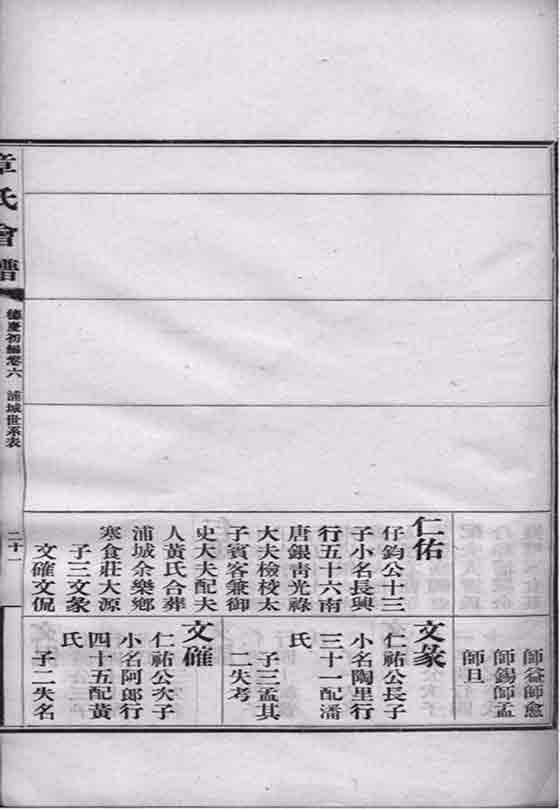 師益師愈
師錫師孟
師旦
仁佑
仔鈞公十三
子小名長興
行五十六南
唐銀青光祿
大夫檢校太
子賓客兼御
史大夫配夫
人黃氏合葬
浦城余樂鄉
寒食莊大源
子三文彖
文確文侃
文彖
仁祐公長子
小名陶里行
三十一配潘
氏
子三孟其
二失考
文確
仁祐公次子
小名阿郎行
四十五配黃
氏
子二失名
章氏會譜
德慶初編卷六
浦城世系表
二十一